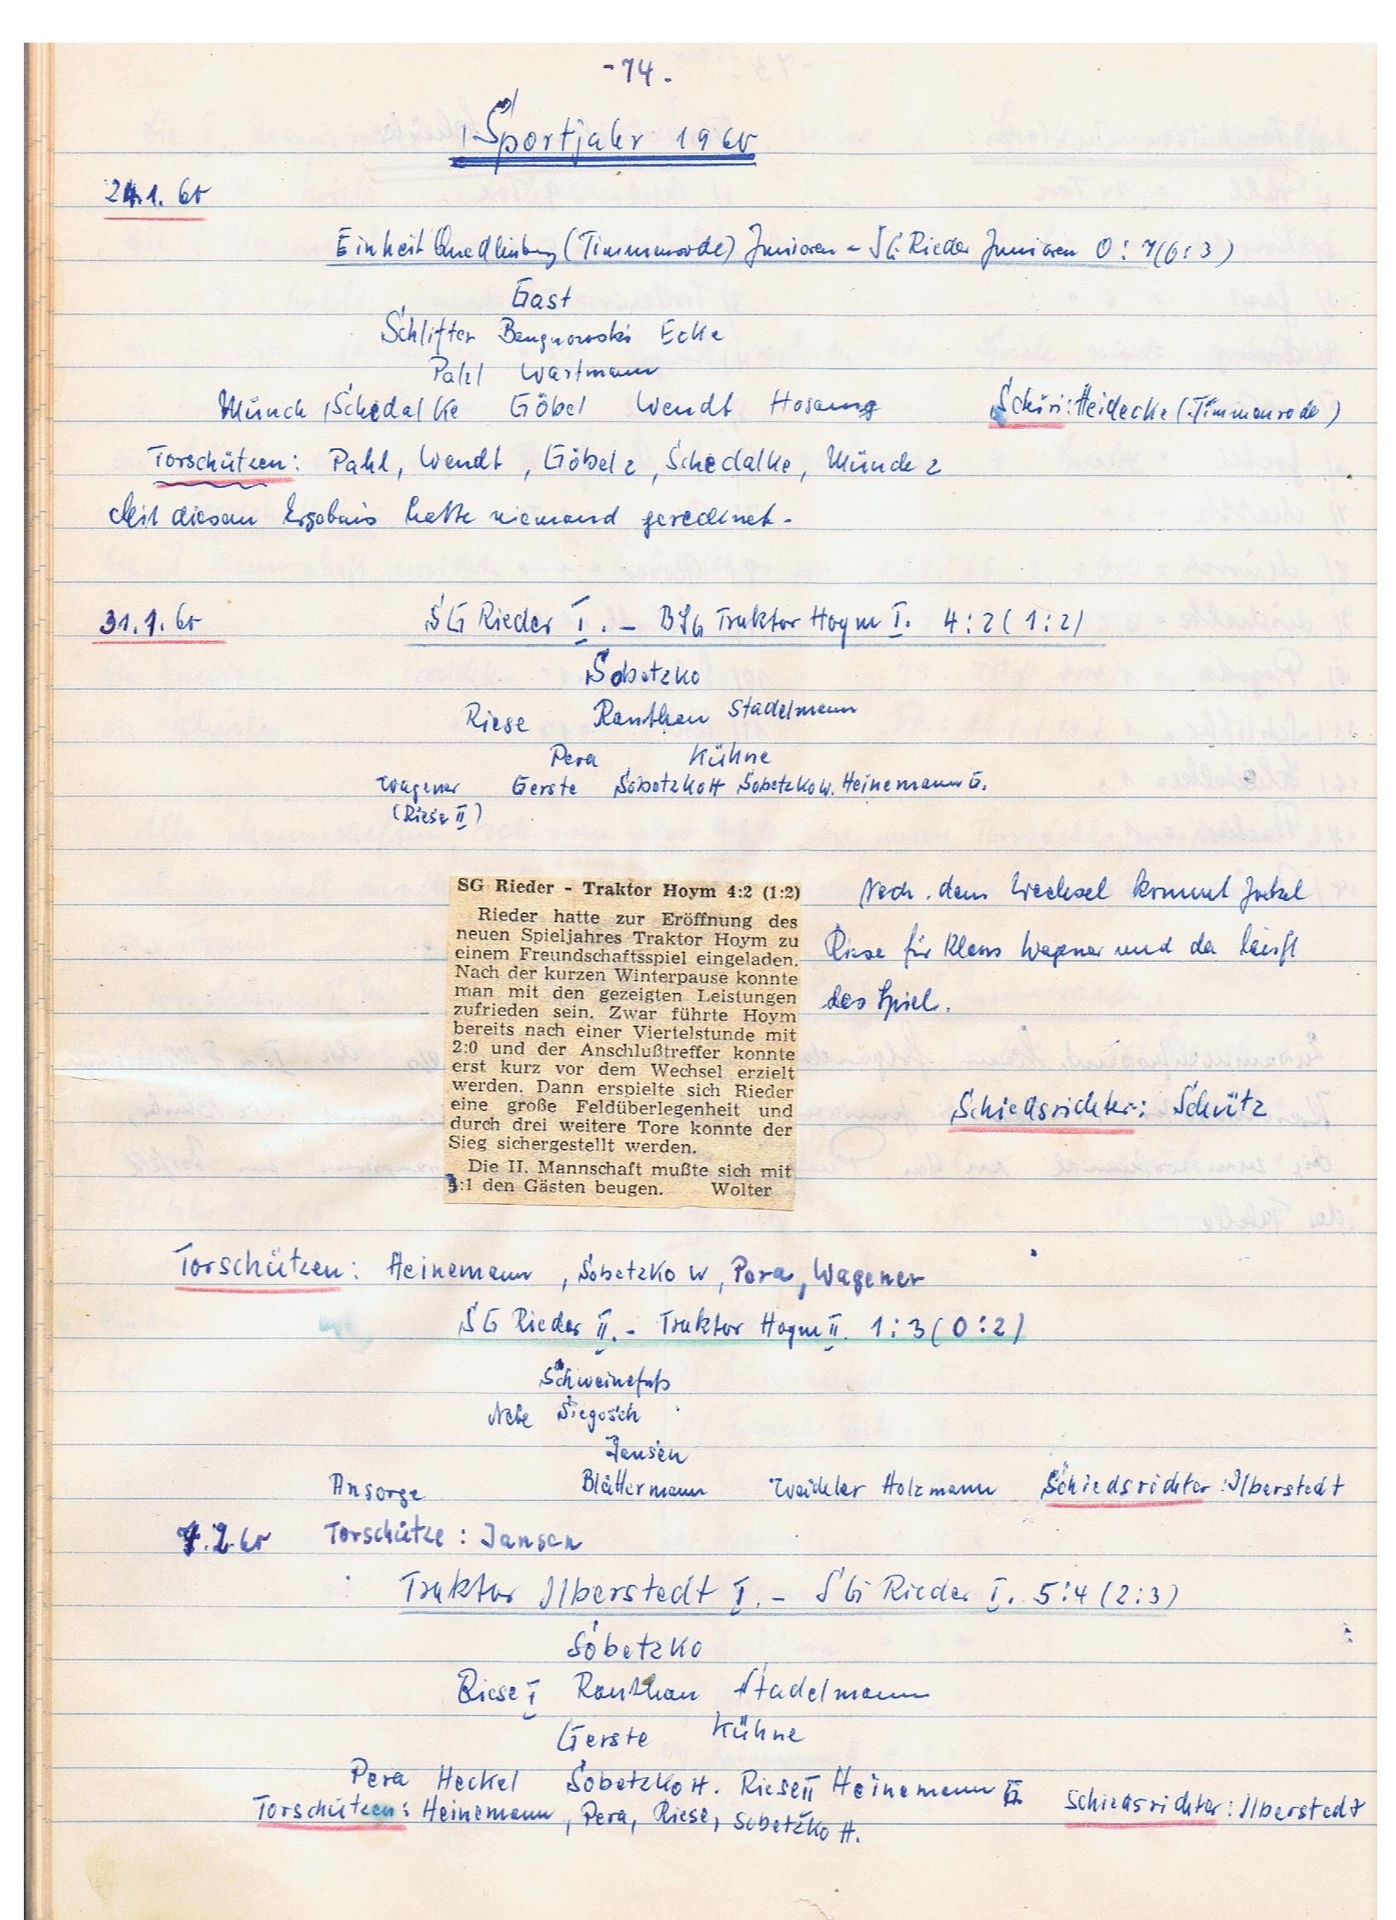 -74-
Sportjahr 1960
24.1.60
Einheit Quedlinburg (Timmenrode) Junioren - SG Rieder Junioren 0:7 (6:3)
Gast
Schlifter Ecke
Pahl Wartmann
Münch Schedalke Göbel Wendt Hosang Schiri: Heidecke (Timmenrode)
Torschützen: Pahl, Wendt, Göbel 2, Schedalke, Münch 2
Mit diesem Ergebnis hatte niemand gerechnet.
31.1.60 SG Rieder I. - BSG Traktor Hoym I. 4:2 (1:2)
Sobetzko
Riese Ranthan Stadelmann
Pera Kühne
Wagener Gerste Sobetzko H Sobetzko W. Heinemann G.
(Riese II)
SG Rieder - Traktor Hoym 4:2 (1:2)
Rieder hatte zur Eröffnung des
neuen Spieljahres Traktor Hoym zu
einem Freundschaftsspiel eingeladen.
Nach der kurzen Winterpause konnte
man mit den gezeigten Leistungen
zufrieden sein. Zwar führte Hoym
bereits nach einer Viertelstunde mit
2:0 und der Anschlußtreffer konnte
erst kurz vor dem Wechsel erzielt
werden. Dann erspielte sich Rieder
eine große Feldüberlegenheit und
durch drei weitere Tore konnte der
Sieg sichergestellt werden.
Die II. Mannschaft mußte sich mit
3:1 den Gästen beugen. Wolter
Nach dem Wechsel kommt Jockel
Riese für Klaus Wagener und da läuft
das Spiel.
Schiedsrichter: Schütz
Torschützen: Heinemann, Sobetzko W, Pera, Wagener
SG Rieder II. - Traktor Hoym II. 1:3 (0:2)
Schweinefuß
Nebe Siegosch
Jansen
Ansorge Blättermann Weichler Holzmann Schiedsrichter: Ilberstedt
7.2.60 Torschütze: Jansen
Traktor Ilberstedt I. - SG Rieder I. 5:4 (2:3)
Sobetzko
Riese I Ranthan Stadelmann
Gerste Kühne
Pera Heckel Sobetzko H. Riese II Heinemann G.
Torschützen: Heinemann, Pera, Riese, Sobetzko H. Schiedsrichter: Ilberstedt